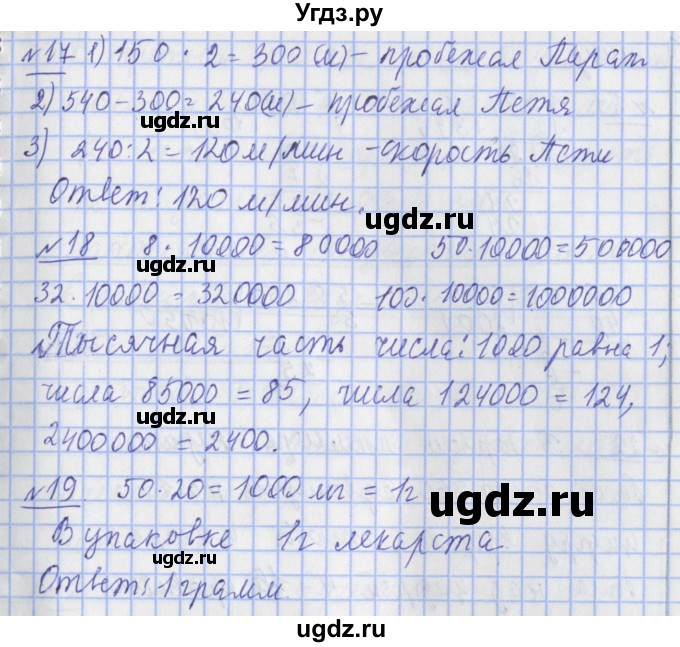 Угдз.ру
№17 1) 150 · 2 = 300 (м) – пробежал Пират
2) 540 – 300 = 240 (м) – пробежал Петя
ugdz.ru
3) 240 : 2 = 120 м/мин – скорость Пети
Ответ: 120 м/мин.
ugdz.ru
№18 8 · 10000 = 80000 50 · 10000 = 500000
32 · 10000 = 320000 100 · 10000 = 1000000
Тысячная часть числа: 1000 равна 1;
числа 85000 = 85, числа 124000 = 124,
ugdz.ru
2400000 = 2400.
№19 50 · 20 = 1000 мг = 1г
ugdz.ru
В упаковке 1г лекарста.
ugdz.ru
Ответ: 1 грамм.
ugdz.ru